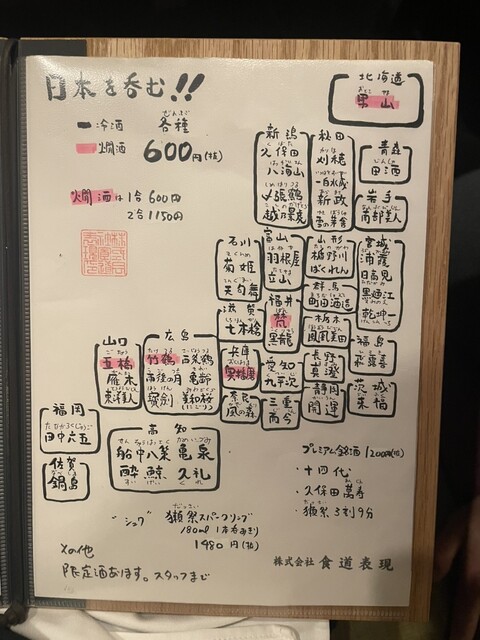 日本を呑む!!
冷酒 各種
燗酒 600円(税)
燗酒は1合600円
2合1150円
北海道
男山
青森
田酒
岩手
南部美人
秋田
刈穂
一白水成
新政
雪の茅舎
新潟
久保田
八海山
〆張鶴
越乃景虎
宮城
浦霞
日高見
黒
乾坤一
山形
楯野川
ばくれん
富山
羽根屋
立山
石川
菊姫
天狗舞
群馬
町田酒造
栃木
鳳凰美田
福島
福井
梵
黒龍
滋賀
七本槍
茨城
来福
長野
真澄
静岡
開運
愛知
九平次
三重
而今
兵庫
奥播磨
奈良
風の森
広島
竹鶴 西條鶴
雨後の月 亀齢
誠鏡 美和桜
(にごり)
山口
五橋
雁木
東洋美人
福岡
田中六五
佐賀
鍋島
高知
船中八策 亀泉
酔鯨 久礼
プレミアム冷酒 1200円(税)
・十四代
・久保田萬寿
・獺祭 3割9分
"シュワ" 獺祭スパークリング
180ml 1本
1480円(税)
その他
限定酒あります。スタッフまで
株式会社 食道表現